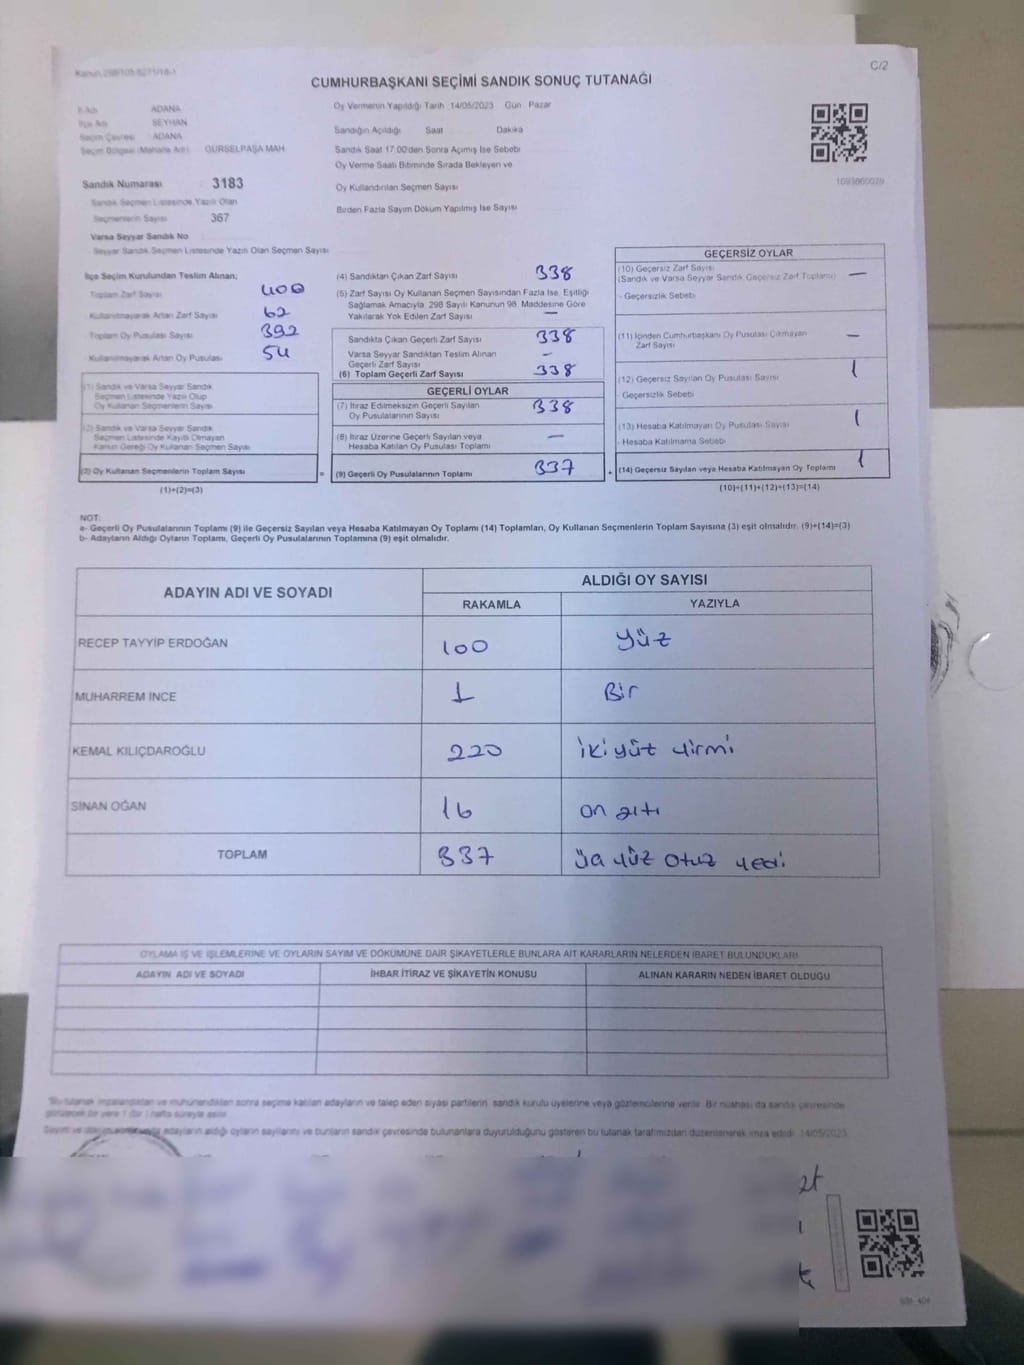 C/2
CUMHURBAŞKANI SEÇİMİ SANDIK SONUÇ TUTANAĞI
İl Adı ADANA
İlçe Adı SEYHAN
Seçim Çevresi ADANA
Seçim Bölgesi (Mahalle Adı) GÜRSELPAŞA MAH
Sandık Numarası : 3183
Sandık Seçmen Listesinde Yazılı Olan
Seçmenlerin Sayısı 367
Varsa Seyyar Sandık No
Seyyar Sandık Seçmen Listesinde Yazılı Olan Seçmen Sayısı
Oy Vermenin Yapıldığı Tarih 14/05/2023 Gün Pazar
Sandığın Açıldığı Saat Dakika
Sandık Saat 17.00'den Sonra Açımış İse Sebebi
Oy Verme Saati Bitiminde Sırada Bekleyen ve
Oy Kullandırılan Seçmen Sayısı
Birden Fazla Sayım Döküm Yapılmış İse Sayısı
1093860079
İlçe Seçim Kurulundan Teslim Alınan;
Toplam Zarf Sayısı 400
Kullanılmayarak Artan Zarf Sayısı 62
Toplam Oy Pusulası Sayısı 392
Kullanılmayarak Artan Oy Pusulası 54
(1) Sandık ve Varsa Seyyar Sandık
Seçmen Listesinde Yazılı Olup
Oy Kullanan Seçmenlerin Sayısı
(2) Sandık ve Varsa Seyyar Sandık
Seçmen Listesinde Kayıtlı Olmayan
Kanun Gereği Oy Kullanan Seçmen Sayısı
(3) Oy Kullanan Seçmenlerin Toplam Sayısı =
(1)+(2)=(3)
(4) Sandıktan Çıkan Zarf Sayısı 338
(5) Zarf Sayısı Oy Kullanan Seçmen Sayısından Fazla İse, Eşitliği
Sağlamak Amacıyla, 298 Sayılı Kanunun 98. Maddesine Göre
Yakılarak Yok Edilen Zarf Sayısı —
Sandıkta Çıkan Geçerli Zarf Sayısı 338
Varsa Seyyar Sandıktan Teslim Alınan
Geçerli Zarf Sayısı –
(6) Toplam Geçerli Zarf Sayısı 338
GEÇERLİ OYLAR
(7) İtiraz Edilmeksizin Geçerli Sayılan
Oy Pusulalarının Sayısı 338
(8) İtiraz Üzerine Geçerli Sayılan veya
Hesaba Katılan Oy Pusulası Toplamı —
(9) Geçerli Oy Pusulalarının Toplamı 337 +
GEÇERSİZ OYLAR
(10) Geçersiz Zarf Sayısı
(Sandık ve Varsa Seyyar Sandık Geçersiz Zarf Toplamı) —
- Geçersizlik Sebebi
(11) İçinden Cumhurbaşkanı Oy Pusulası Çıkmayan
Zarf Sayısı —
(12) Geçersiz Sayılan Oy Pusulası Sayısı 1
- Geçersizlik Sebebi
(13) Hesaba Katılmayan Oy Pusulası Sayısı 1
- Hesaba Katılmama Sebebi
(14) Geçersiz Sayılan veya Hesaba Katılmayan Oy Toplamı 1
(10)+(11)+(12)+(13)=(14)
NOT:
a- Geçerli Oy Pusulalarının Toplamı (9) ile Geçersiz Sayılan veya Hesaba Katılmayan Oy Toplamı (14) Toplamları, Oy Kullanan Seçmenlerin Toplam Sayısına (3) eşit olmalıdır. (9)+(14)=(3)
b- Adayların Aldığı Oyların Toplamı, Geçerli Oy Pusulalarının Toplamına (9) eşit olmalıdır.
ADAYIN ADI VE SOYADI ALDIĞI OY SAYISI
RAKAMLA YAZIYLA
RECEP TAYYİP ERDOĞAN 100 yüz
MUHARREM İNCE 1 Bir
KEMAL KILIÇDAROĞLU 220 iki yüz yirmi
SİNAN OĞAN 16 on altı
TOPLAM 337 üç yüz otuz yedi
OYLAMA İŞ VE İŞLEMLERİNE VE OYLARIN SAYIM VE DÖKÜMÜNE DAİR ŞİKAYETLERLE BUNLARA AİT KARARLARIN NELERDEN İBARET BULUNDUKLARI
ADAYIN ADI VE SOYADI İHBAR İTİRAZ VE ŞİKAYETİN KONUSU ALINAN KARARIN NEDEN İBARET OLDUĞU
Bu tutanak imzalandıktan ve mühürlendikten sonra seçime katılan adayların ve talep eden siyasi partilerin, sandık kurulu üyelerine veya gözlemcilerine verilir. Bir nüshası da sandık çevresinde
görülecek bir yere 1 (bir) hafta süreyle asılır.
adayların aldığı oyların sayılarını ve bunların sandık çevresinde bulunanlara duyurulduğunu gösteren bu tutanak tarafımızdan düzenlenerek imza edildi. 14/05/2023